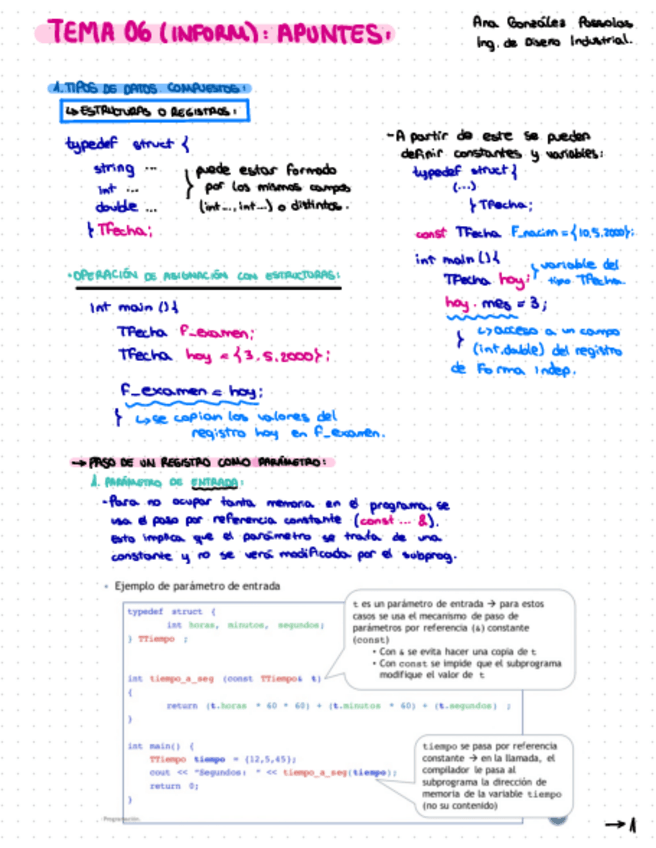 TEMA 06 (INFORM): APUNTES:
Ana González Posadas
Ing. de Diseño Industrial.
1. TIPOS DE DATOS COMPUESTOS:
↳ ESTRUCTURAS O REGISTROS:
typedef struct {
string ...
int ...
double ...
} TFecha;
puede estar formado
por los mismos campos
(int..., int...) o distintos.
- A partir de este se pueden
definir constantes y variables:
typedef struct {
(...)
} TFecha;
const TFecha F_nacim = {10,5,2000};
int main () {
TFecha hoy;
variable del
tipo TFecha.
hoy. mes = 3;
} ↳ acceso a un campo
(int, doble) del registro
de forma indep.
· OPERACIÓN DE ASIGNACIÓN CON ESTRUCTURAS:
int main () {
TFecha F_examen;
TFecha hoy = {3,5,2000};
F_examen = hoy;
} ↳ se copian los valores del
registro hoy en F_examen.
→ PASO DE UN REGISTRO COMO PARÁMETRO:
1. PARÁMETRO DE ENTRADA:
- Para no ocupar tanta memoria en el programa, se
usa el paso por referencia constante (const ... &).
Esto implica que el parámetro se trata de una
constante y no se verá modificada por el subprog.
• Ejemplo de parámetro de entrada
typedef struct {
int horas, minutos, segundos;
} TTiempo ;
t es un parámetro de entrada → para estos
casos se usa el mecanismo de paso de
parámetros por referencia (&) constante
(const)
• Con & se evita hacer una copia de t
• Con const se impide que el subprograma
modifique el valor de t
int tiempo_a_seg (const TTiempo& t)
{
return (t.horas * 60 * 60) + (t.minutos * 60) + (t.segundos) ;
}
int main() {
TTiempo tiempo = {12,5,45};
cout << "Segundos: " << tiempo_a_seg(tiempo);
return 0;
}
tiempo se pasa por referencia
constante → en la llamada, el
compilador le pasa al
subprograma la dirección de
memoria de la variable tiempo
(no su contenido)
Programación
→ 1